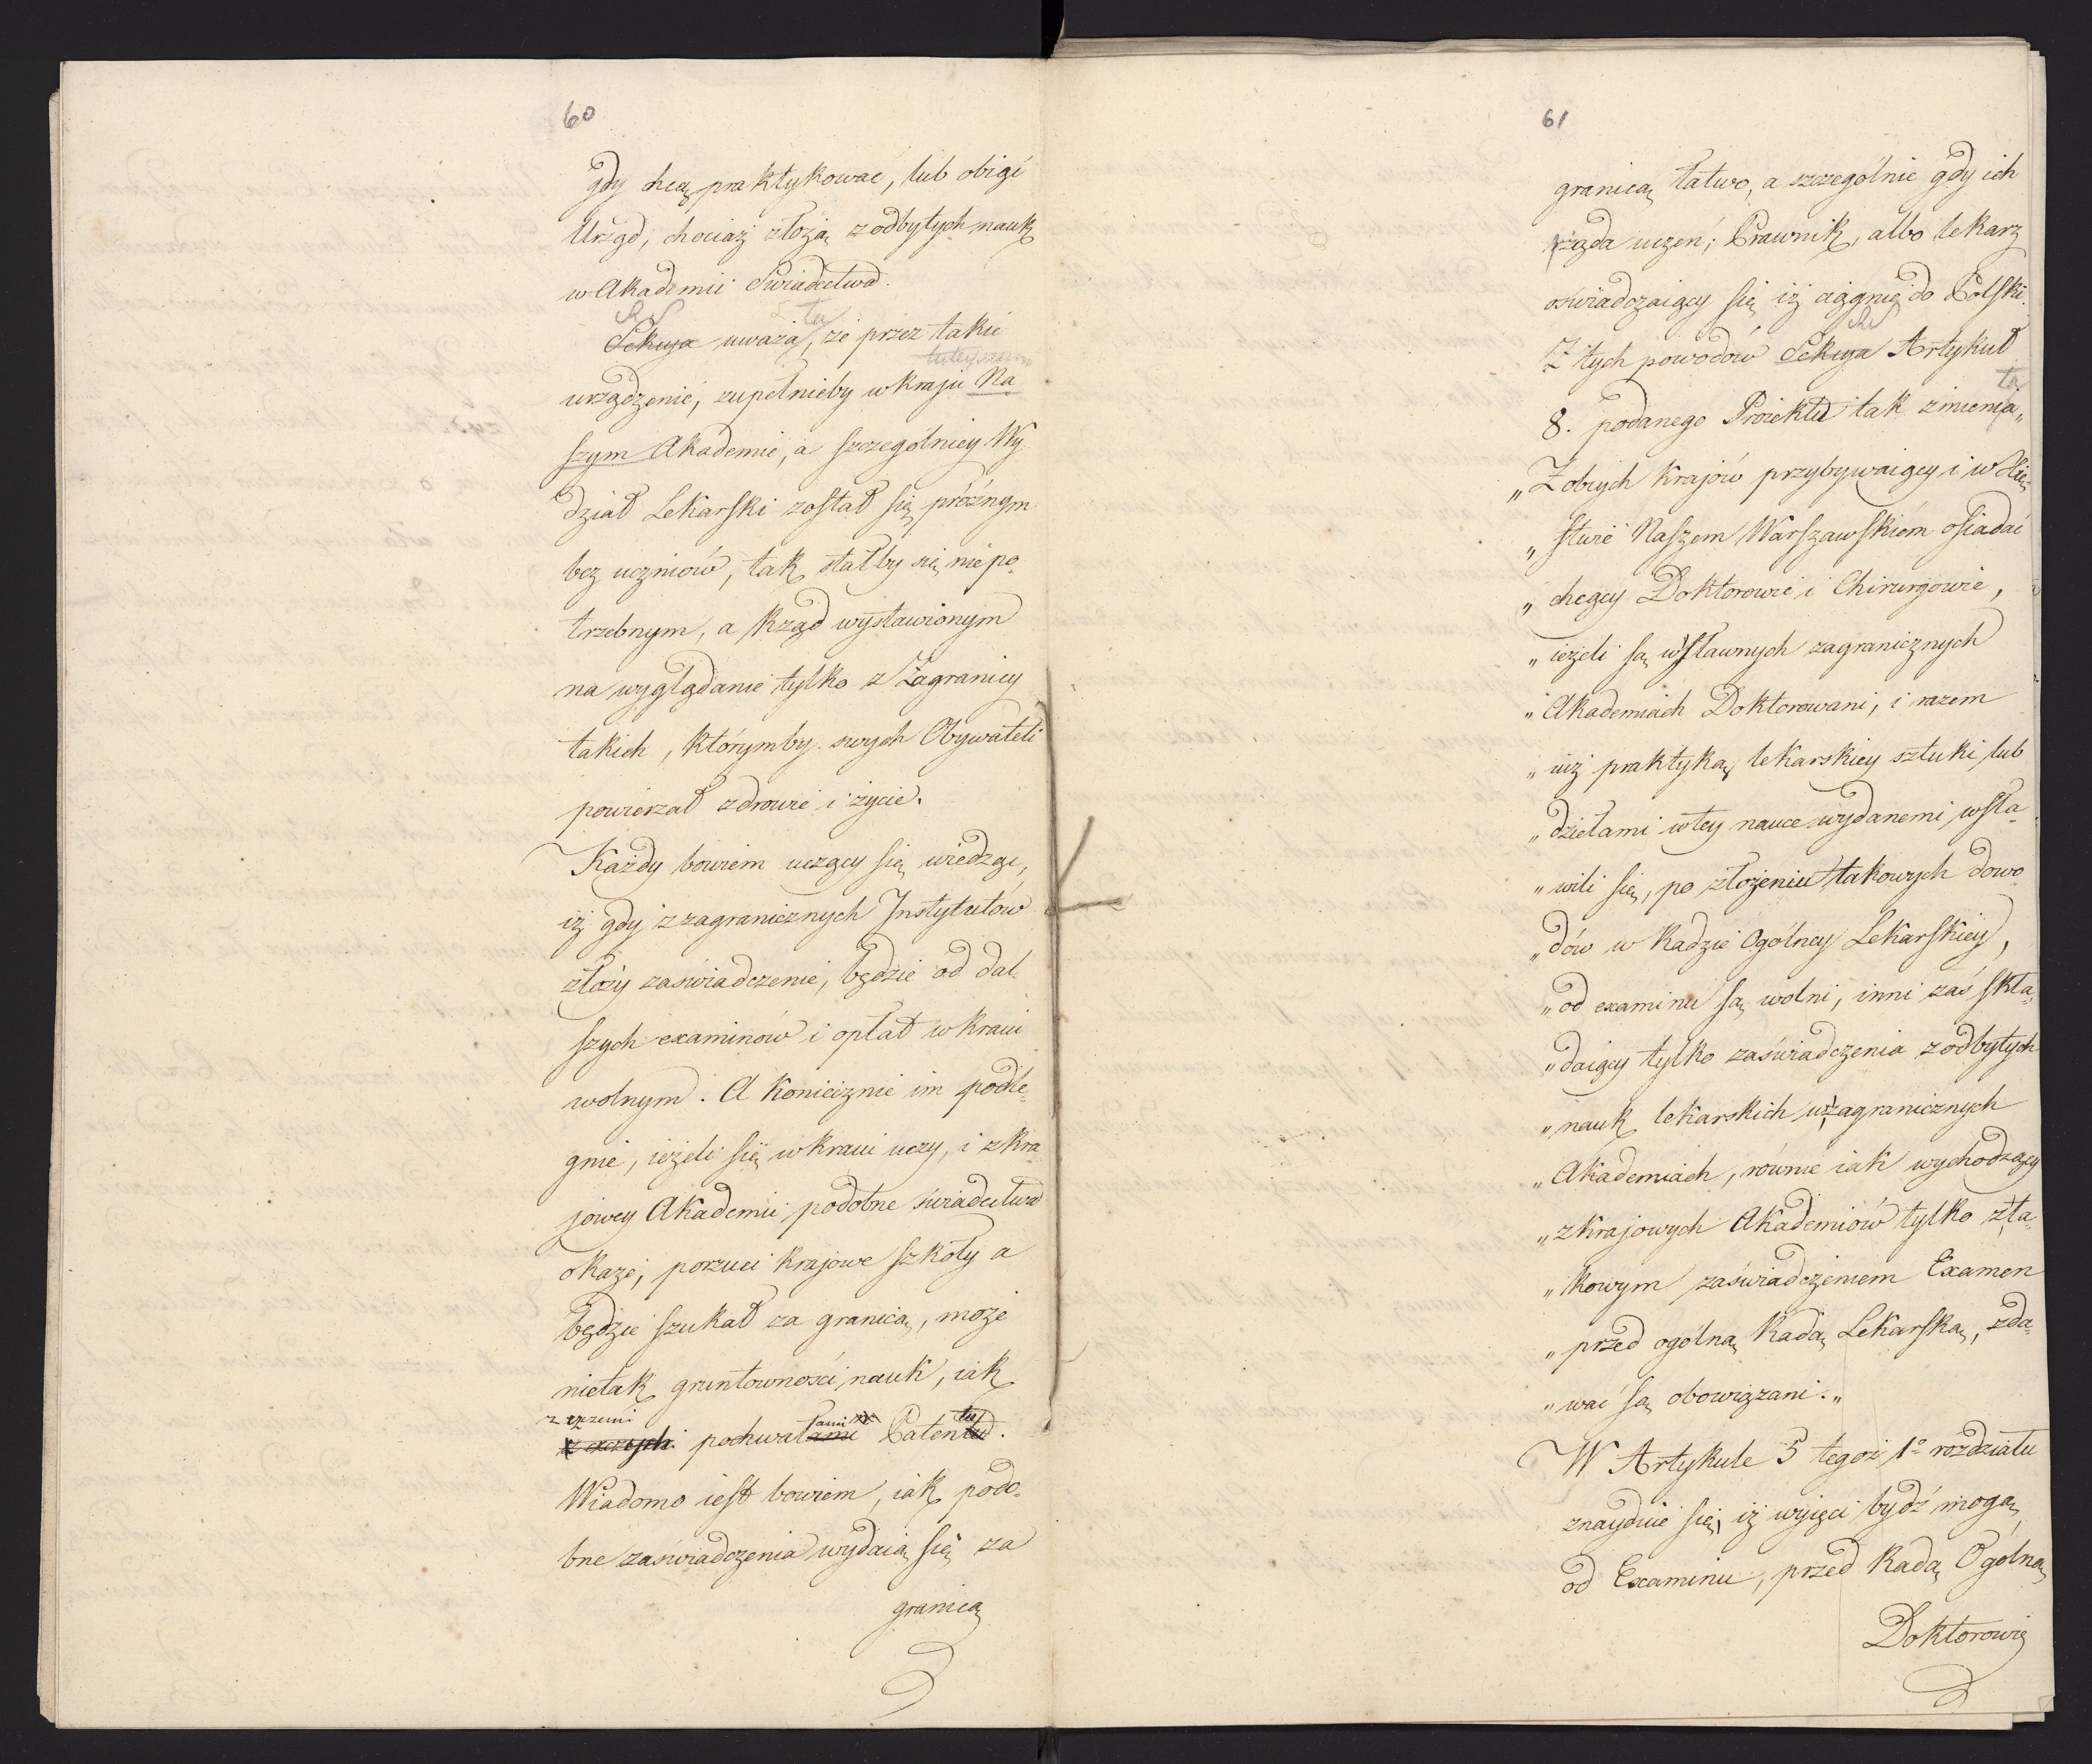 60
gdy chcą praktykować, lub obiąć
Urząd, chociaż złożą z odbytych nauk
w Akademii Swiadectwa.
Sekcya uważa, że przez takie
tuteyszem
urządzenie, zupełnieby w kraju Na
szym Akademie, a szczególniey Wy
dział Lekarski został się próżnym
bez uczniów, tak stałby się niepo-
trzebnym, a Rząd wystawionym
na wyglądanie tylko z Zagranicy
takich, którymby swych Obywateli
powierzał zdrowie i życie.
Każdy bowiem uczący się wiedząc,
iż gdy z zagranicznych Instytutów
złoży zaświadczenie, będzie od dal
szych examinów i opłat w kraiu
wolnym. A koniecznie im podle-
gnie, ieżeli się w kraiu uczy, i z kra
jowey Akademii podobne świadectwa
okaże, porzuci krajowe szkoły a
będzie szukał za granicą, może
nietak gruntowności nauk, iak
z czczemi
z czczych pochwałami Patentu.
Wiadomo iest bowiem, iak podo-
bne zaświadczenia wydaią się za
granicą
61
granicą łatwo, a szczególnie gdy ich
żąda uczeń, Prawnik, albo lekarz
oświadczaiący się iż ciągnie do Polski.
Z tych powodów Sekcya Artykuł
ta
8. podanego Proiektu tak zmienia„
„Z obcych krajów przybywaiący i w Xię-
„stwie Naszem Warszawskiém osiadać
„chcący Doktorowie i Chirurgowie,
„ieżeli są w sławnych zagranicznych
„Akademiach Doktorowani, i razem
„iuż praktyką lekarskiey sztuki lub
„dziełami w tey nauce wydanemi wsła-
„wili się, po złożeniu takowych dowo
„dów w Radzie Ogólney Lekarskiey,
„od examinu są wolni, inni zaś skła-
„daiący tylko zaświadczenia z odbytych
„nauk lekarskich w zagranicznych
„Akademiach, równie iak wychodzący
„z krajowych Akademiów tylko z ta-
„kowym zaświadczeniem Examen
„przed ogólną Radą Lekarską, zda-
„wać są obowiązani.„
W Artykule 5 tegoż 1º rozdziału
znayduie się, iż wyięci bydź mogą
od Examinu, przed Radą Ogólną
Doktorowie